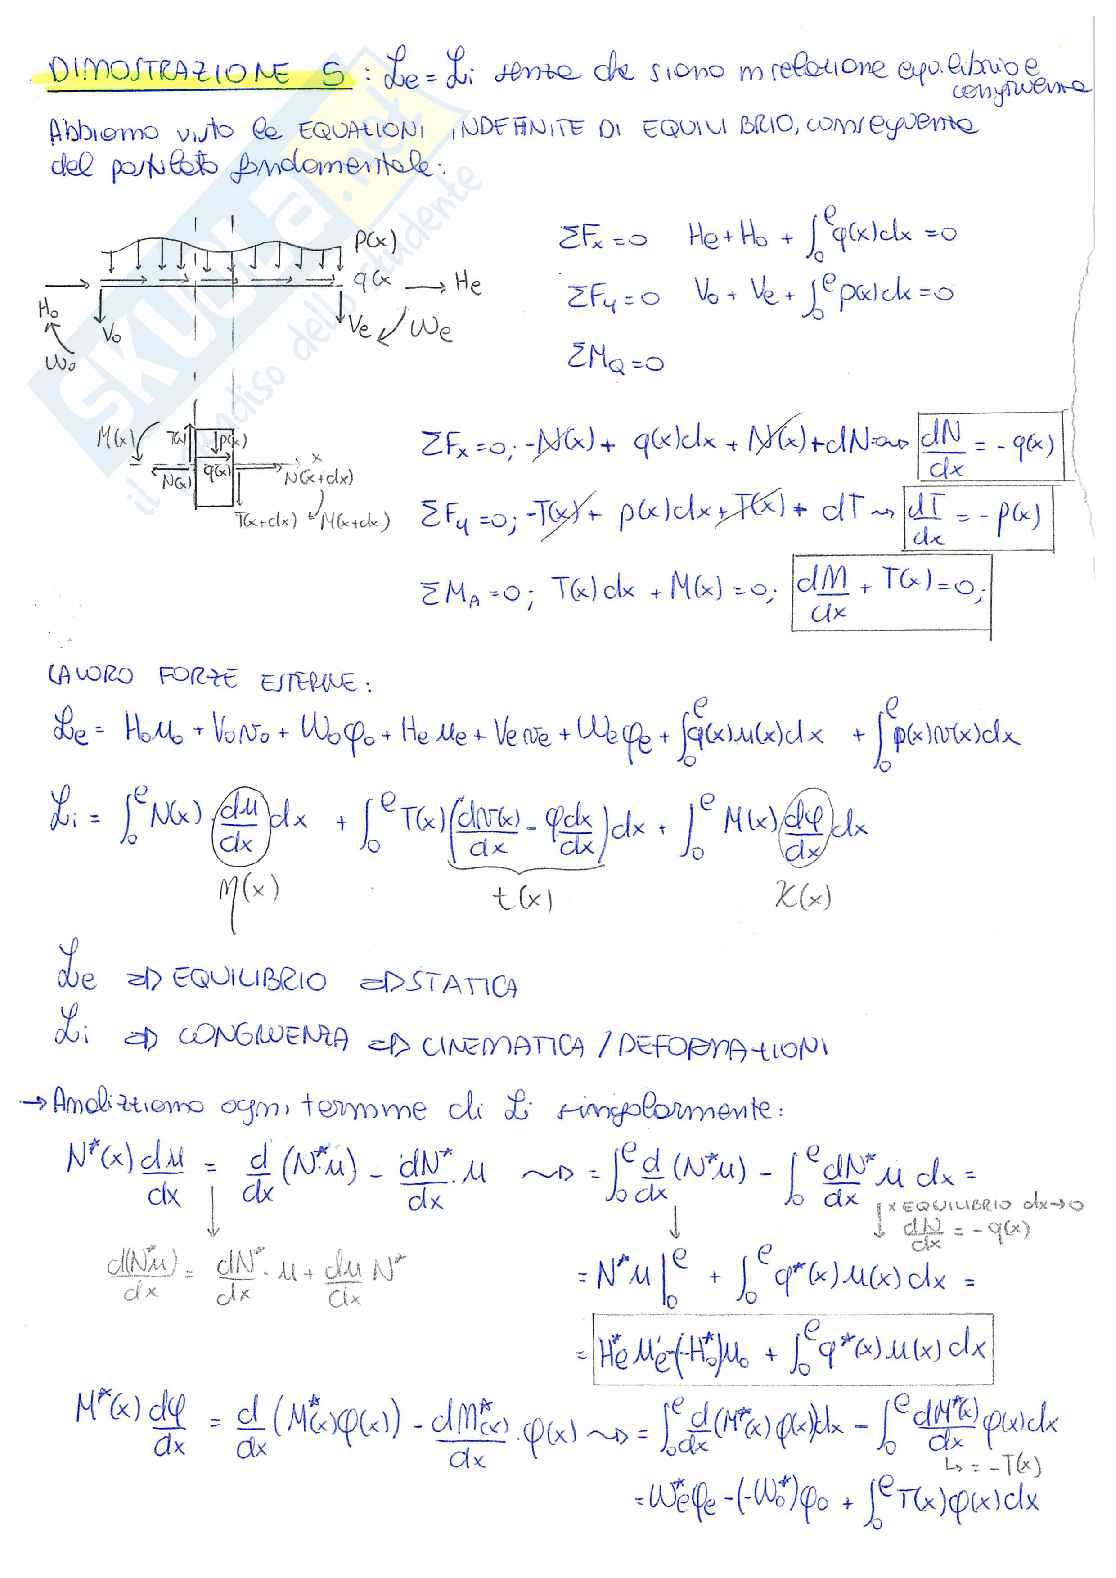 DIMOSTRAZIONE 5 : ℒe = ℒi senza che siano in relazione equilibrio e
congruenza
Abbiamo visto le EQUAZIONI INDEFINITE DI EQUILIBRIO, conseguenza
del postulato fondamentale:
p(x)
q(x)
He
H₀
V₀
W₀
Ve
We
ΣFx=0 He+H₀ + ∫₀ˡ q(x)dx =0
ΣFy=0 V₀ + Ve + ∫₀ˡ p(x)dx =0
ΣM_Q=0
M(x)
T(x)
p(x)
x
N(x)
q(x)
N(x+dx)
T(x+dx)
M(x+dx)
ΣFx=0; -N(x)+ q(x)dx + N(x)+dN=0 ⇝ dN/dx = -q(x)
ΣFy=0; -T(x)+ p(x)dx + T(x) + dT ⇝ dT/dx = -p(x)
ΣM_A=0; T(x)dx + M(x)=0; dM/dx + T(x)=0;
LAVORO FORZE ESTERNE:
ℒe = H₀u₀ + V₀v₀ + W₀φ₀ + He ue + Ve ve + We φe + ∫₀ˡ q(x)u(x)dx + ∫₀ˡ p(x)v(x)dx
ℒi = ∫₀ˡ N(x) du/dx dx + ∫₀ˡ T(x)(dv(x)/dx - φ dx/dx)dx + ∫₀ˡ M(x) dφ/dx dx
η(x)
t(x)
χ(x)
ℒe ⇒ EQUILIBRIO ⇒ STATICA
ℒi ⇒ CONGRUENZA ⇒ CINEMATICA / DEFORMAZIONI
→ Analizziamo ogni termine di ℒi singolarmente:
N*(x) du/dx = d/dx (N*u) - dN*/dx · u ⇝ = ∫₀ˡ d/dx (N*u) - ∫₀ˡ dN*/dx u dx =
x EQUILIBRIO dx→0
dN/dx = -q(x)
d(N*u)/dx = dN*/dx · u + du/dx N*
= N*u |₀ˡ + ∫₀ˡ q*(x)u(x)dx =
= He* ue -(-H₀*)u₀ + ∫₀ˡ q*(x)u(x)dx
M*(x) dφ/dx = d/dx (M*(x)φ(x)) - dM*(x)/dx · φ(x) ⇝ = ∫₀ˡ d/dx (M*(x)φ(x))dx - ∫₀ˡ dM*(x)/dx φ(x)dx
↳ = -T(x)
= We*φe -(-W₀*)φ₀ + ∫₀ˡ T(x)φ(x)dx
SKUOLA.net
il paradiso dello studente